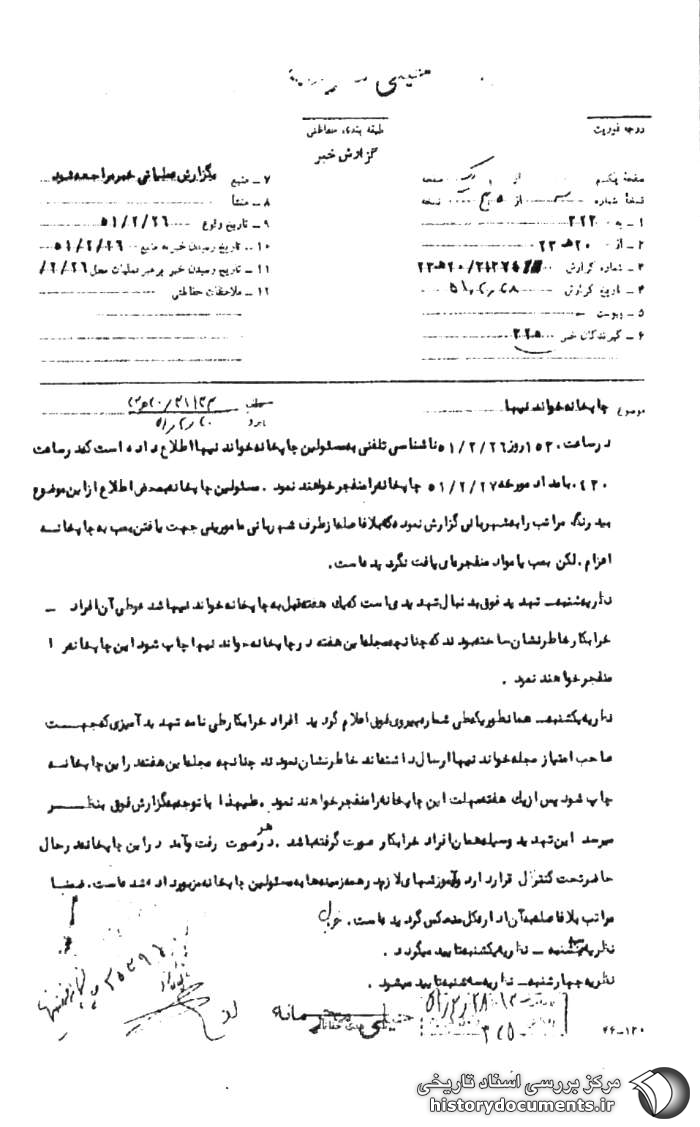 درجه فوریت
طبقه بندی حفاظتی
گزارش خبر
صفحه یکم از یک صفحه
نسخه شماره از ۵ نسخه
۱ ـ به ۳۲۲
۲ ـ از ۲۰هـ ۲۳
۳ ـ شماره گزارش
۴ ـ تاریخ گزارش ۵۱/۲/۲۸
۵ ـ پیوست
۶ ـ گیرندگان خبر
۷ ـ منبع بگزارش عملیاتی خبر مراجعه شود
۸ ـ منشأ
۹ ـ تاریخ وقوع ۵۱/۲/۲۶
۱۰ ـ تاریخ رسیدن خبر به منبع ۵۱/۲/۲۶
۱۱ ـ تاریخ رسیدن خبر به رهبر عملیات محل ۲/۲۶/
۱۲ ـ ملاحظات حفاظتی
موضوع چاپخانه خواندنیها
عطف
پیرو
در ساعت ۱۵۳۰ روز ۵۱/۲/۲۶ ناشناسی تلفنی به مسئولین چاپخانه خواندنیها اطلاع داده است که در ساعت
۰۴۳۰ بامداد مورخه ۵۱/۲/۲۷ چاپخانه را منفجر خواهند نمود . مسئولین چاپخانه بمحض اطلاع از این موضوع
بیدرنگ مراتب را به شهربانی گزارش نموده که بلافاصله از طرف شهربانی مامورینی جهت یافتن بمب به چاپخانه
اعزام . لکن بمب یا مواد منفجره‌ای یافت نگردیده است .
نظریه شنبه ـ تهدید فوق بدنبال تهدیدی است که یک هفته قبل به چاپخانه خواندنیها شده و طی آن افراد ـ
خرابکار خاطرنشان ساخته بودند که چنانچه مجله این هفته در چاپخانه خواندنیها چاپ شود این چاپخانه را
منفجر خواهند نمود .
نظریه یکشنبه ـ همانطوریکه طی شماره پیروی فوق اعلام گردید افراد خرابکار طی نامه تهدید آمیزی که جهت
صاحب امتیاز مجله خواندنیها ارسال داشته‌اند خاطرنشان نمودند چنانچه مجله این هفته در این چاپخانه
چاپ شود پس از یک هفته مهلت این چاپخانه را منفجر خواهند نمود . علیهذا با توجه به گزارش فوق بنظر
میرسد این تهدید وسیله همان افراد خرابکار صورت گرفته باشد . در هر صورت رفت و آمد در این چاپخانه در حال
حاضر تحت کنترل قرار دارد و آموزشهای لازم در همه زمینه‌ها به مسئولین چاپخانه مزبور داده شده است . ضمنا
مراتب بلافاصله به آن اداره کل منعکس گردیده است .
نظریه سه شنبه ـ نظریه یکشنبه تایید میگردد .
نظریه چهارشنبه ـ نظریه سه شنبه تایید میشود .
خیلی محرمانه
۲۶-۱۲۰
مرکز بررسی اسناد تاریخی
historydocuments.ir